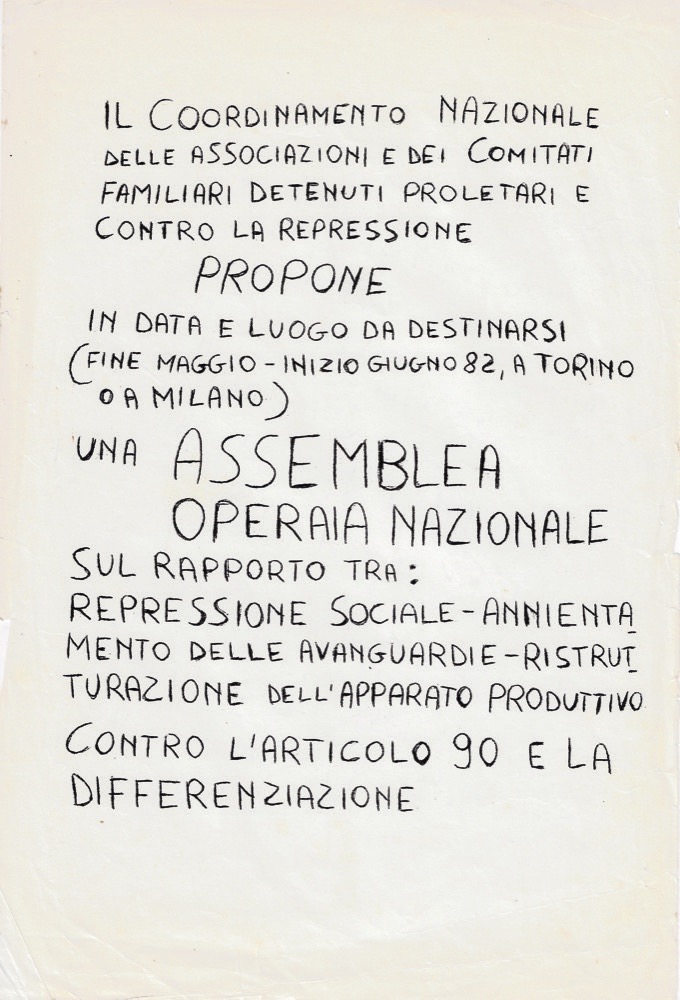 IL COORDINAMENTO NAZIONALE
DELLE ASSOCIAZIONI E DEI COMITATI
FAMILIARI DETENUTI PROLETARI E
CONTRO LA REPRESSIONE
PROPONE
IN DATA E LUOGO DA DESTINARSI
(FINE MAGGIO - INIZIO GIUGNO 82, A TORINO
O A MILANO)
UNA ASSEMBLEA
OPERAIA NAZIONALE
SUL RAPPORTO TRA:
REPRESSIONE SOCIALE - ANNIENTA
MENTO DELLE AVANGUARDIE - RISTRUT
TURAZIONE DELL'APPARATO PRODUTTIVO
CONTRO L'ARTICOLO 90 E LA
DIFFERENZIAZIONE